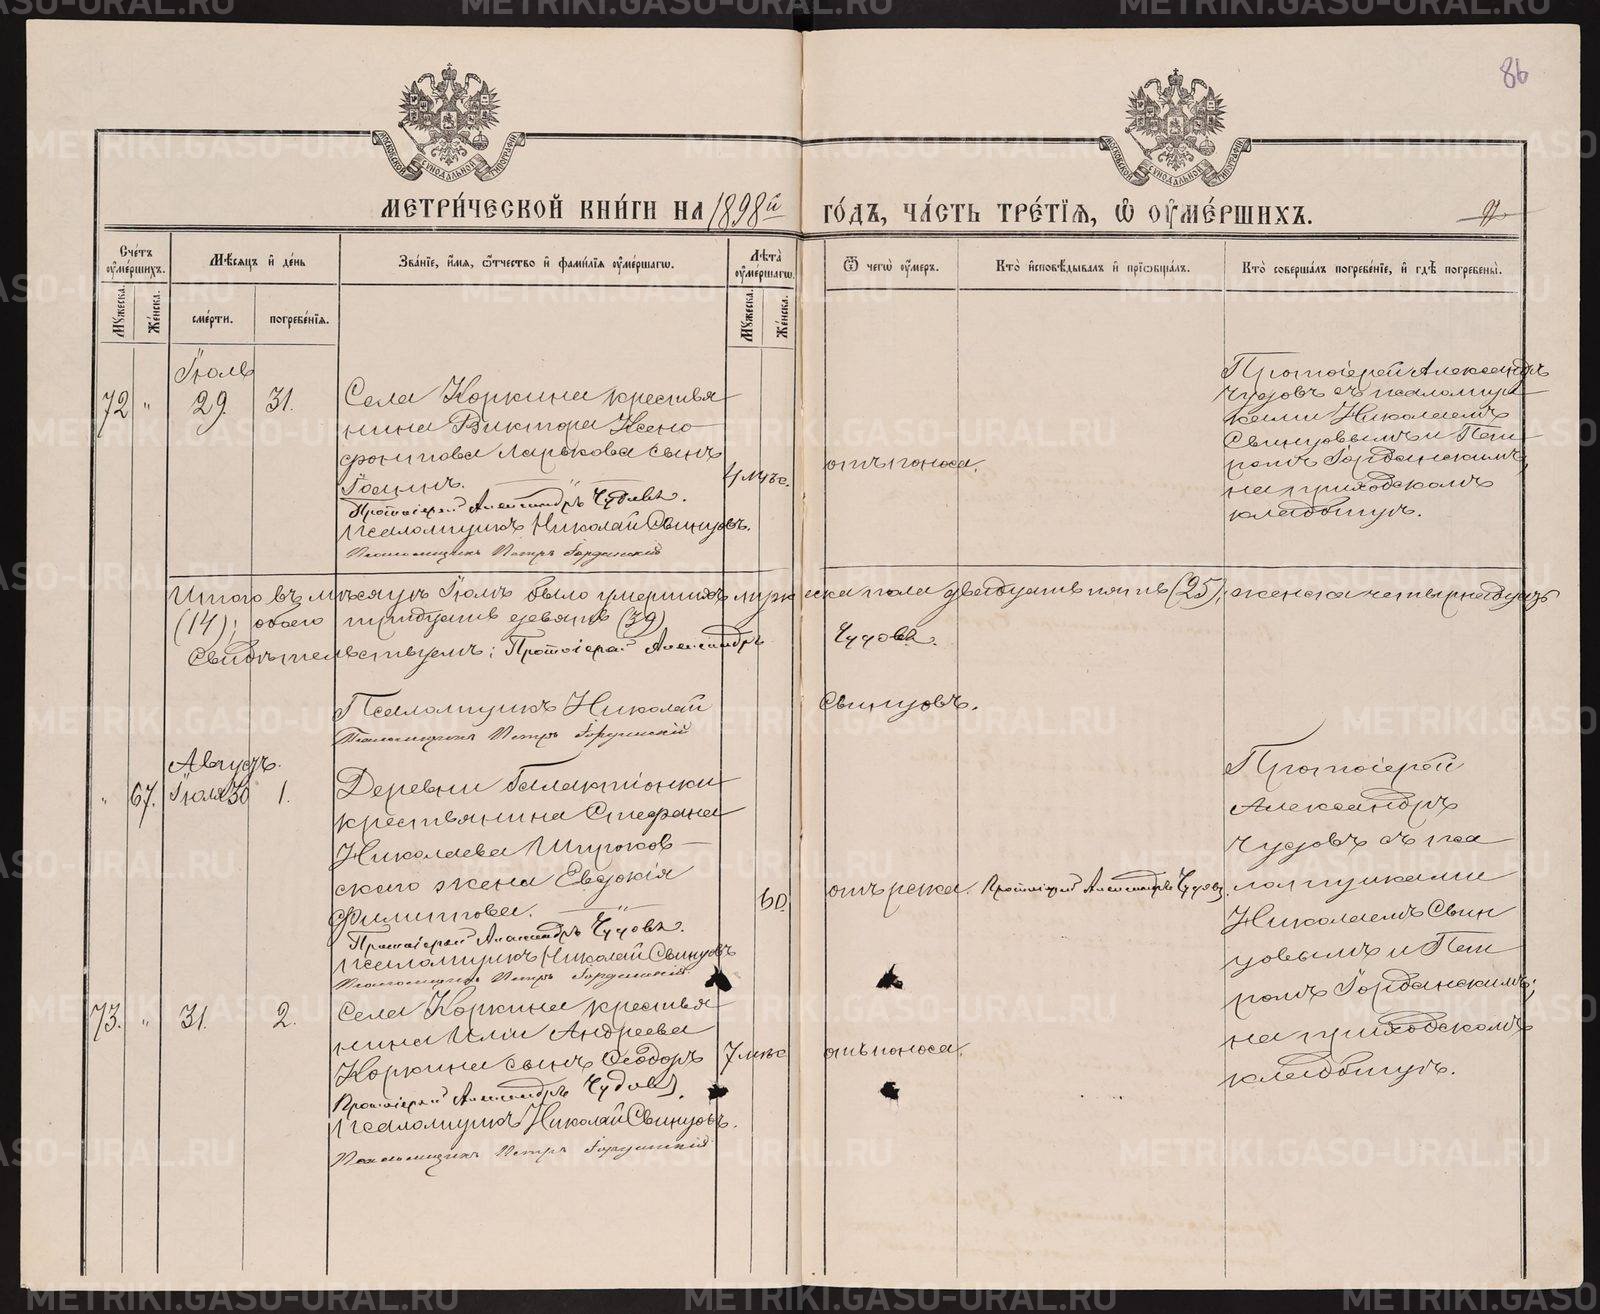 86
МЕТРИ́ЧЕСКОЙ КНИ́ГИ НА 1898й ГО́ДЪ, ЧА́СТЬ ТРЕ́ТІѦ, Ѿ ОУМЕ́РШИХЪ.
Сче́тъ оуме́ршихъ.
Мѣ́сяцъ и де́нь
Зва́нїе, и́мѧ, ѻ҆́тчество и фамилїѧ оуме́ршагѡ.
Лѣта̀ оуме́ршагѡ.
Ѿ чегѡ̀ оу́меръ.
Кто̀ и҆сповѣ́дывалъ и прїѡбща́лъ.
Кто̀ соверша́лъ погребе́нїе, и гдѣ̀ погребены̀.
Мꙋ́жеска.
Же́нска.
сме́рти.
погребе́нїѧ.
Мꙋ́жеска.
Же́нска.
Іюль
72 " 29. 31.
Села Коркина крестья
нина Виктора Ксено
фонтова Ларькова сынъ
Іоаннъ.
Протоіерей Александръ Чудовъ.
Псаломщикъ Николай Свинцовъ.
Псаломщикъ Петръ Іорданскій
4 мѣс.
отъ поноса.
Протоіерей Александръ
Чудовъ съ псаломщи
ками Николаемъ
Свинцовымъ и Пет
ромъ Іорданскимъ,
на приходскомъ
кладбищѣ.
Итого въ мѣсяцѣ Іюлѣ было умершихъ мужеска пола двадцать пять (25); женска четырнадцать
(14); обоего тридцать девять (39)
Свидѣтельствуемъ: Протоіерей Александръ Чудовъ.
Псаломщикъ Николай Свинцовъ.
Псаломщикъ Петръ Іорданскій
Августъ.
" 67. Іюля 30 1.
Деревни Галактіонки
крестьянина Стефана
Николаева Широков-
скаго жена Евдокія
Филиппова.
Протоіерей Александръ Чудовъ.
Псаломщикъ Николай Свинцовъ
Псаломщикъ Петръ Іорданскій
60.
отъ рака.
Протоіерей Александръ Чудовъ.
Протоіерей
Александръ
Чудовъ съ пса
ломщиками
Николаемъ Свин
цовымъ и Пет
ромъ Іорданскимъ;
на приходскомъ
кладбищѣ.
73. " 31. 2.
Села Коркина крестья
нина Иліи Андреева
Коркина сынъ Ѳеодоръ
Протоіерей Александръ Чудовъ.
Псаломщикъ Николай Свинцовъ.
Псаломщикъ Петръ Іорданскій
7 мѣс
отъ поноса.
METRIKI.GASO-URAL.RU